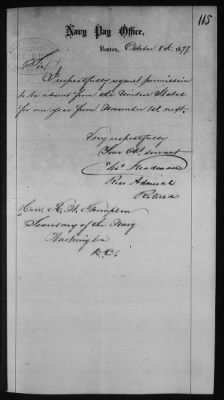 115
Navy Pay Office,
Boston, October 8th, 1877.
Sir,
I respectfully request permission
to be absent from the United States
for one year from November 1st next.
Very respectfully
Your Obt servant
Chs Steedman
Rear Admiral
Retired
Hon. R. W. Thompson
Secretary of the Navy
Washington
D.C.